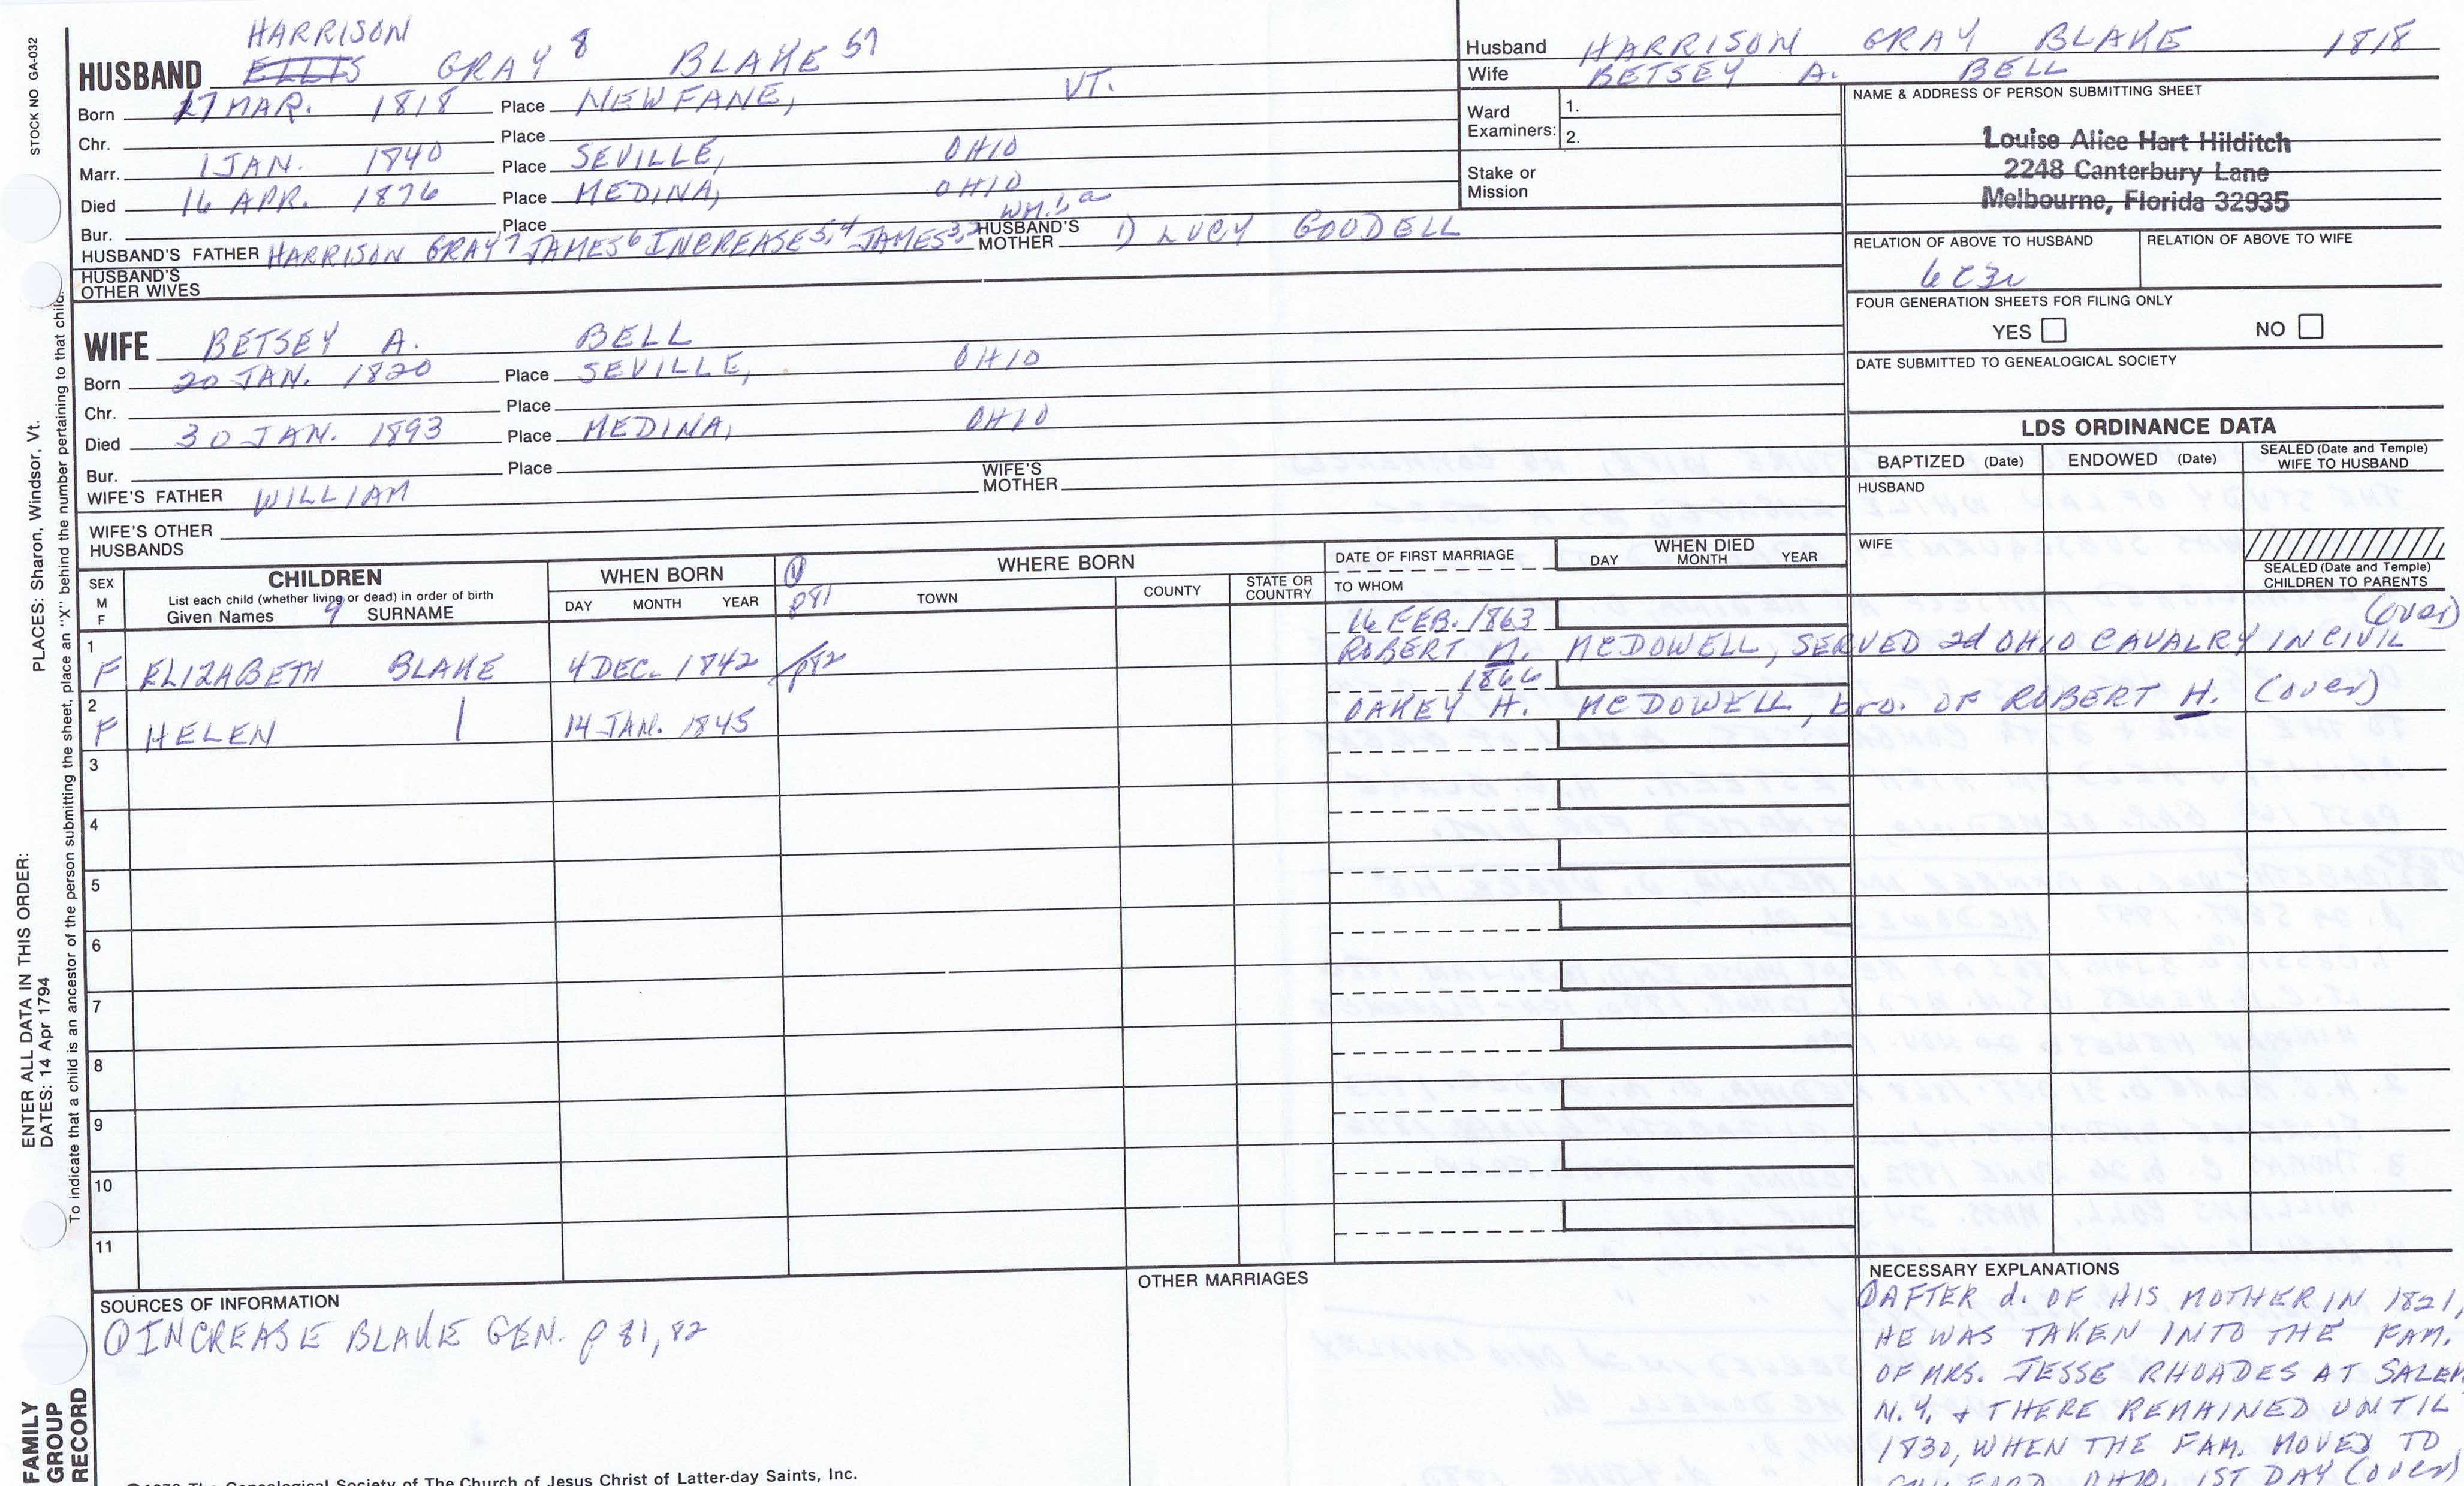 STOCK NO. GA-032
HARRISON
HUSBAND ELLIS GRAY 8 BLAKE 57
Born 17 MAR. 1818 Place NEWFANE, VT.
Chr. Place
Marr. 1 JAN. 1840 Place SEVILLE, OHIO
Died 16 APR. 1876 Place MEDINA, OHIO
Bur. Place
WM.1, a
HUSBAND'S FATHER HARRISON GRAY7 JAMES6 INCREASE5,4 JAMES3,2 HUSBAND'S MOTHER 1) LUCY GOODELL
HUSBAND'S OTHER WIVES
WIFE BETSEY A. BELL
Born 20 JAN. 1820 Place SEVILLE, OHIO
Chr. Place
Died 30 JAN. 1893 Place MEDINA, OHIO
Bur. Place
WIFE'S FATHER WILLIAM WIFE'S MOTHER
WIFE'S OTHER HUSBANDS
Husband HARRISON GRAY BLAKE 1818
Wife BETSEY A. BELL
Ward Examiners: 1.
2.
Stake or Mission
NAME & ADDRESS OF PERSON SUBMITTING SHEET
Louise Alice Hart Hilditch
2248 Canterbury Lane
Melbourne, Florida 32935
RELATION OF ABOVE TO HUSBAND RELATION OF ABOVE TO WIFE
6C3r
FOUR GENERATION SHEETS FOR FILING ONLY
YES NO
DATE SUBMITTED TO GENEALOGICAL SOCIETY
LDS ORDINANCE DATA
BAPTIZED (Date) ENDOWED (Date) SEALED (Date and Temple) WIFE TO HUSBAND
HUSBAND
WIFE
SEALED (Date and Temple) CHILDREN TO PARENTS
SEX M F
CHILDREN
List each child (whether living or dead) in order of birth
Given Names 9 SURNAME
WHEN BORN
DAY MONTH YEAR
① p81
WHERE BORN
TOWN COUNTY STATE OR COUNTRY
DATE OF FIRST MARRIAGE
TO WHOM
WHEN DIED
DAY MONTH YEAR
16 FEB. 1863 (over)
1 F ELIZABETH BLAKE 4 DEC. 1842 p82 ROBERT M. MCDOWELL, SERVED 2d OHIO CAVALRY IN CIVIL
1866
2 F HELEN | 14 JAN. 1845 OAKEY H. MCDOWELL, bro. OF ROBERT H. (over)
3
4
5
6
7
8
9
10
11
SOURCES OF INFORMATION
① INCREASE BLAKE GEN. p 81, 82
OTHER MARRIAGES
NECESSARY EXPLANATIONS
① AFTER d. OF HIS MOTHER IN 1821,
HE WAS TAKEN INTO THE FAM.
OF MRS. JESSE RHOADES AT SALEM
N.Y. & THERE REMAINED UNTIL
1830, WHEN THE FAM. MOVED TO
GUILFORD, OHIO. 1ST DAY (over)
©1970 The Genealogical Society of The Church of Jesus Christ of Latter-day Saints, Inc.
ENTER ALL DATA IN THIS ORDER:
DATES: 14 Apr 1794
PLACES: Sharon, Windsor, Vt.
To indicate that a child is an ancestor of the person submitting the sheet, place an "X" behind the number pertaining to that child.
FAMILY
GROUP
RECORD